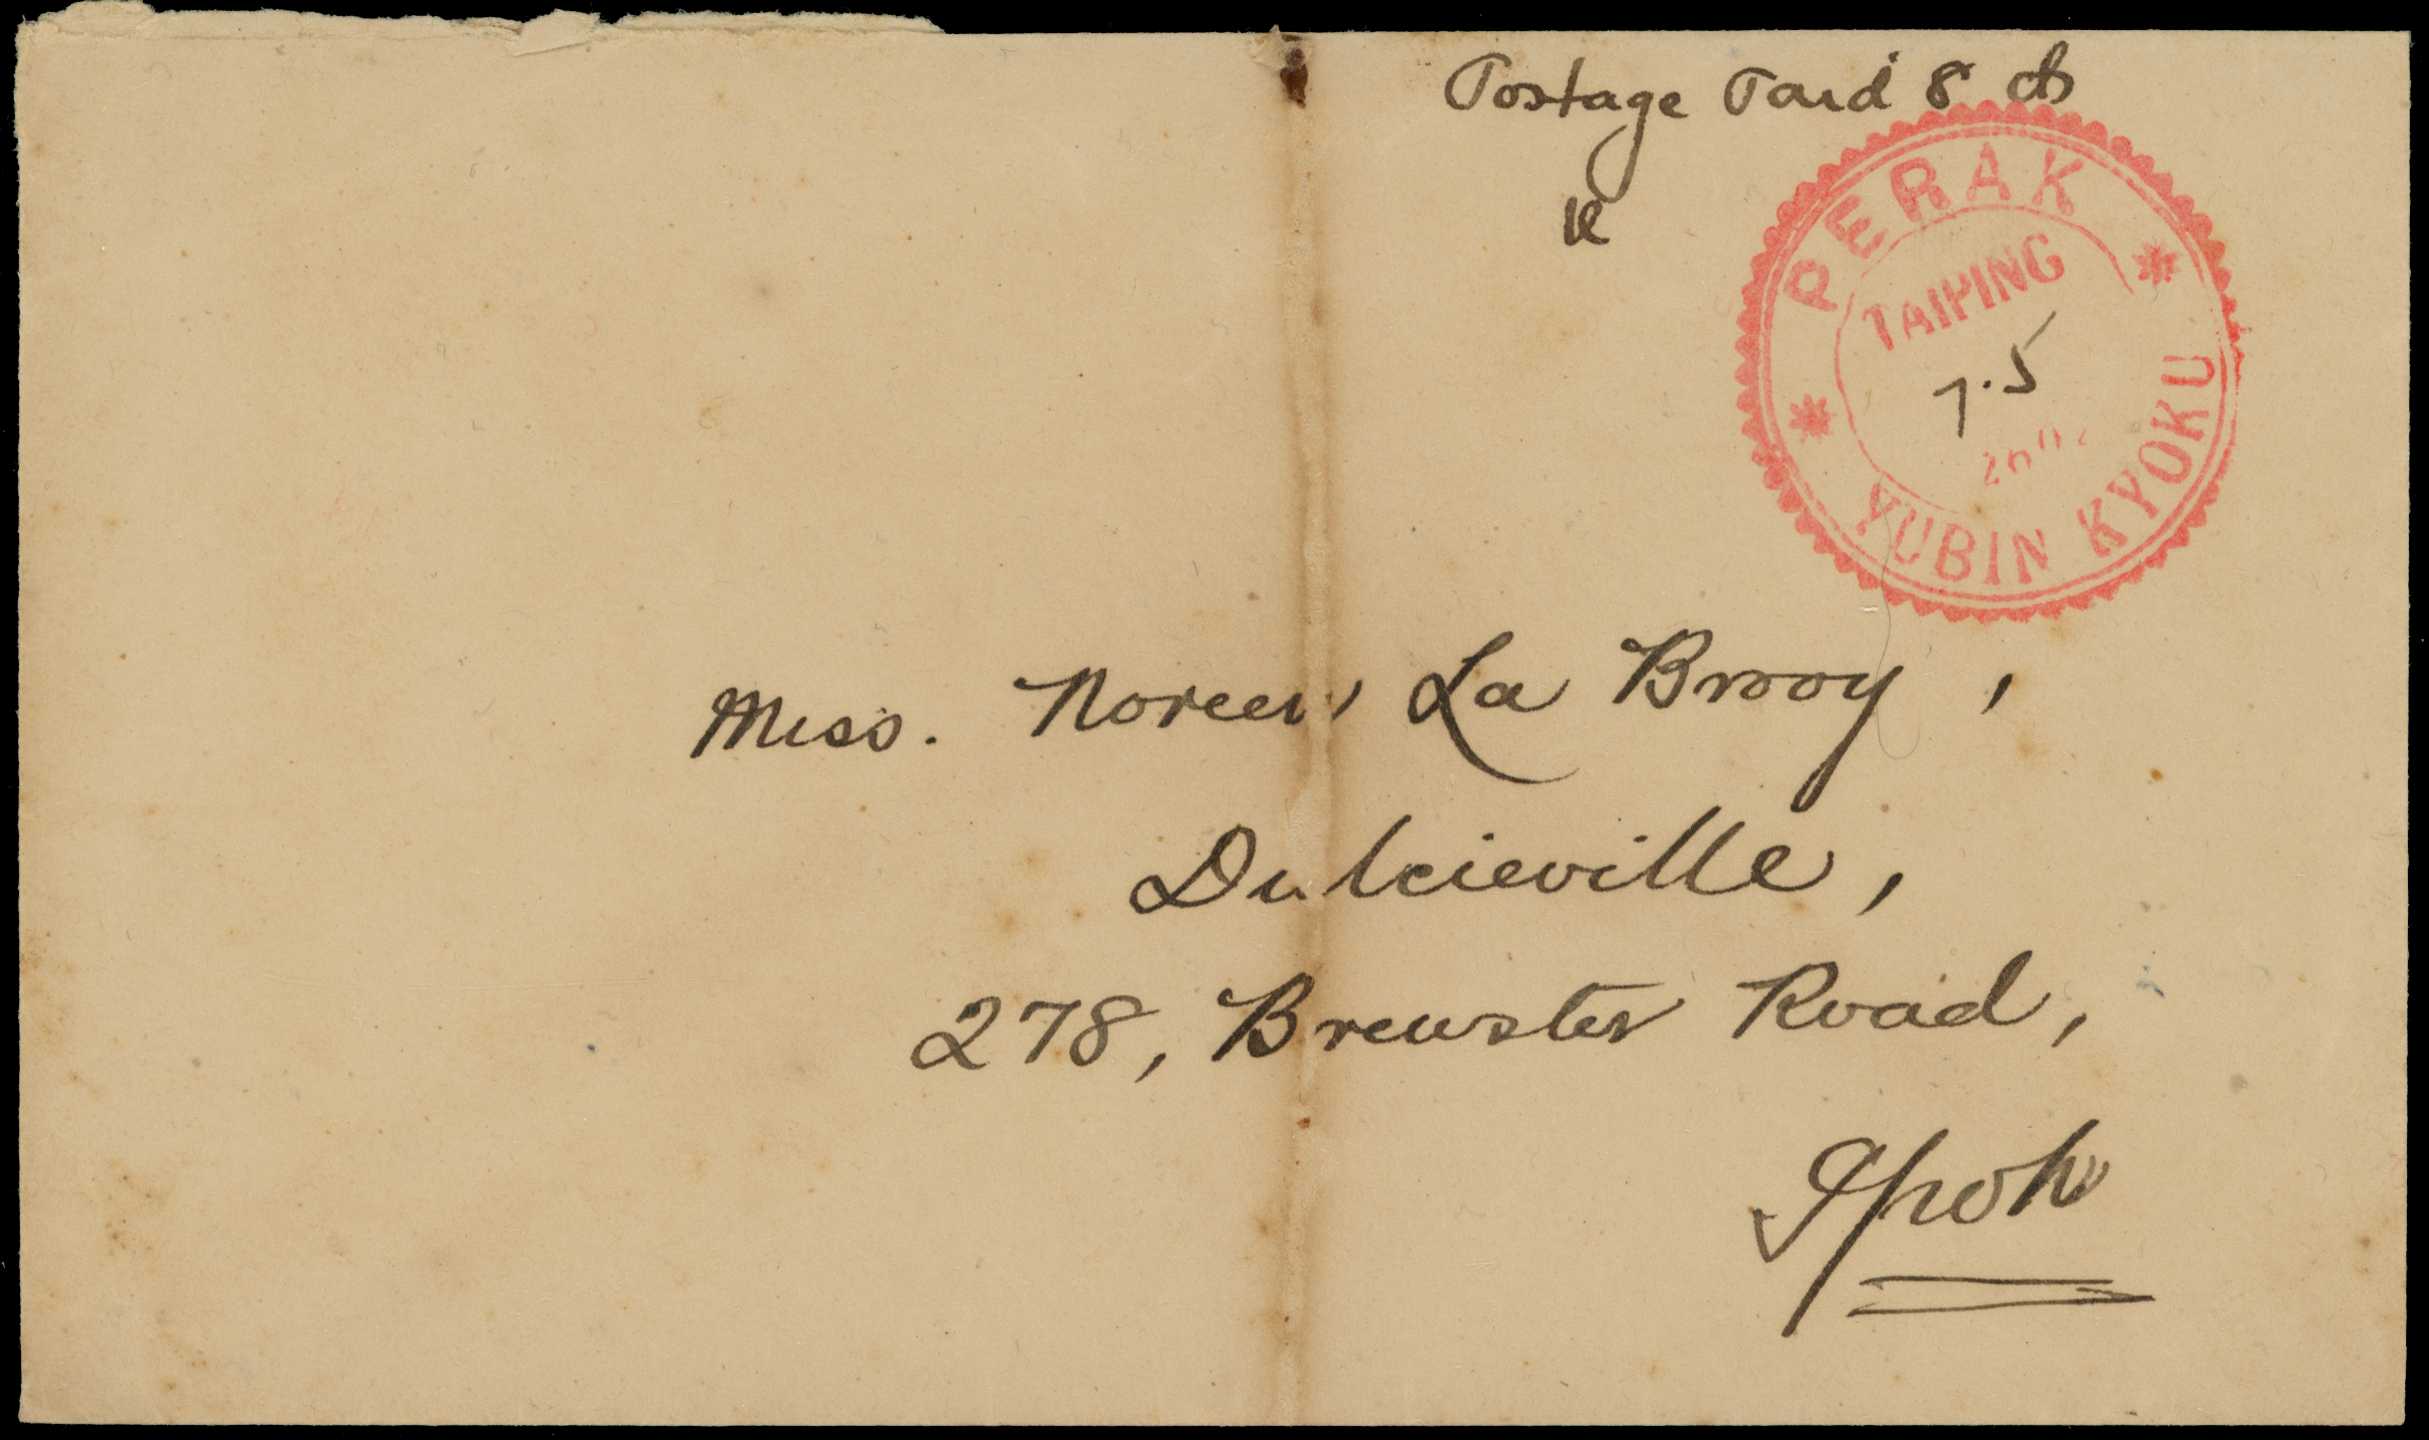 Postage Paid 8 cts
PERAK
TAIPING
7.5
YUBIN KYOKU
Miss. Noreen La Brooy,
Dulcieville,
278, Brewster Road,
Ipoh